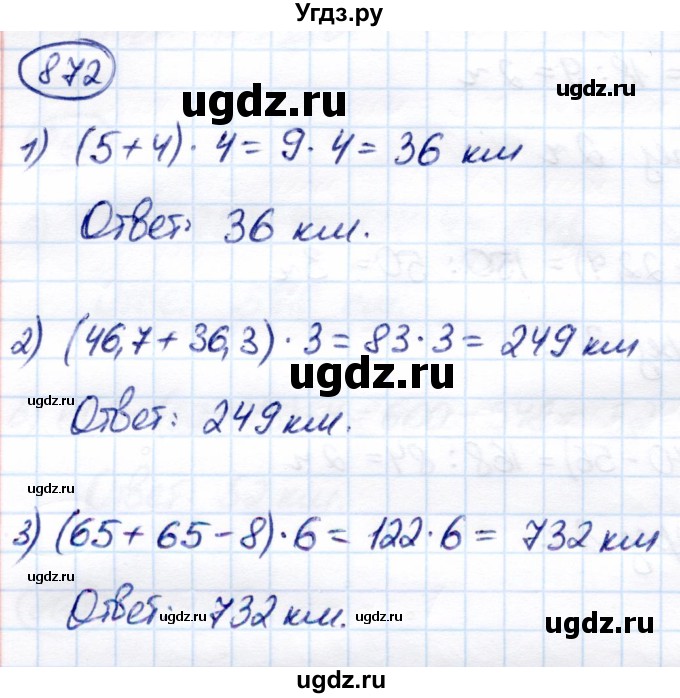 Угдз.ру
872
ugdz.ru
1) (5+4)·4=9·4=36 км
Ответ: 36 км.
2) (46,7+36,3)·3=83·3=249 км
ugdz.ru
ugdz.ru
Ответ: 249 км.
ugdz.ru
3) (65+65-8)·6=122·6=732 км
ugdz.ru
Ответ: 732 км.
ugdz.ru ugdz.ru ugdz.ru
ugdz.ru